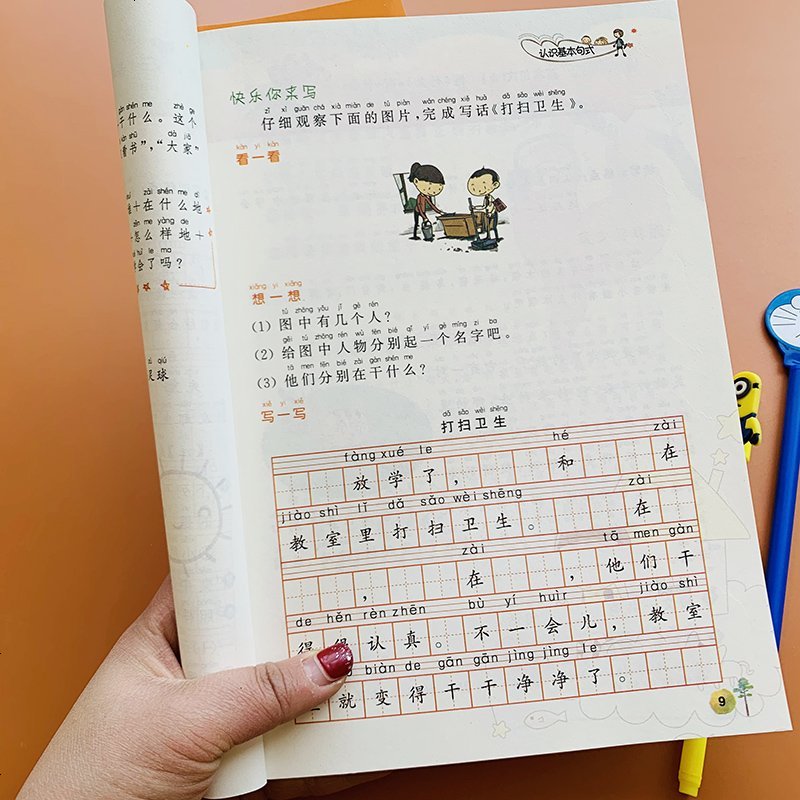 认识基本句式
shén me zhè ge
干什么。这个
kàn shū dà jiā
看书”，“大家”
zài shén me
＋在什么地
zěn me yàng de
怎么样地＋
huì le ma
会了吗？
zú qiú
足球
快乐你来写
zǐ xì guān chá xià miàn de tú piàn wán chéng xiě huà dǎ sǎo wèi shēng
仔细观察下面的图片，完成写话《打扫卫生》。
kàn yi kàn
看一看
xiǎng yi xiǎng
想一想
tú zhōng yǒu jǐ gè rén
（1）图中有几个人？
gěi tú zhōng rén wù fēn bié qǐ yí gè míng zi ba
（2）给图中人物分别起一个名字吧。
tā men fēn bié zài gàn shén me
（3）他们分别在干什么？
xiě yi xiě
写一写
dǎ sǎo wèi shēng
打扫卫生
fàng xué le hé zài
放学了， 和 在
jiào shì lǐ dǎ sǎo wèi shēng zài
教室里打扫卫生。 在
zài tā men gàn
， 在 ，他们干
de hěn rèn zhēn bù yí huìr jiào shì
得很认真。不一会儿，教室
biàn de gān gān jìng jìng le
就变得干干净净了。
9